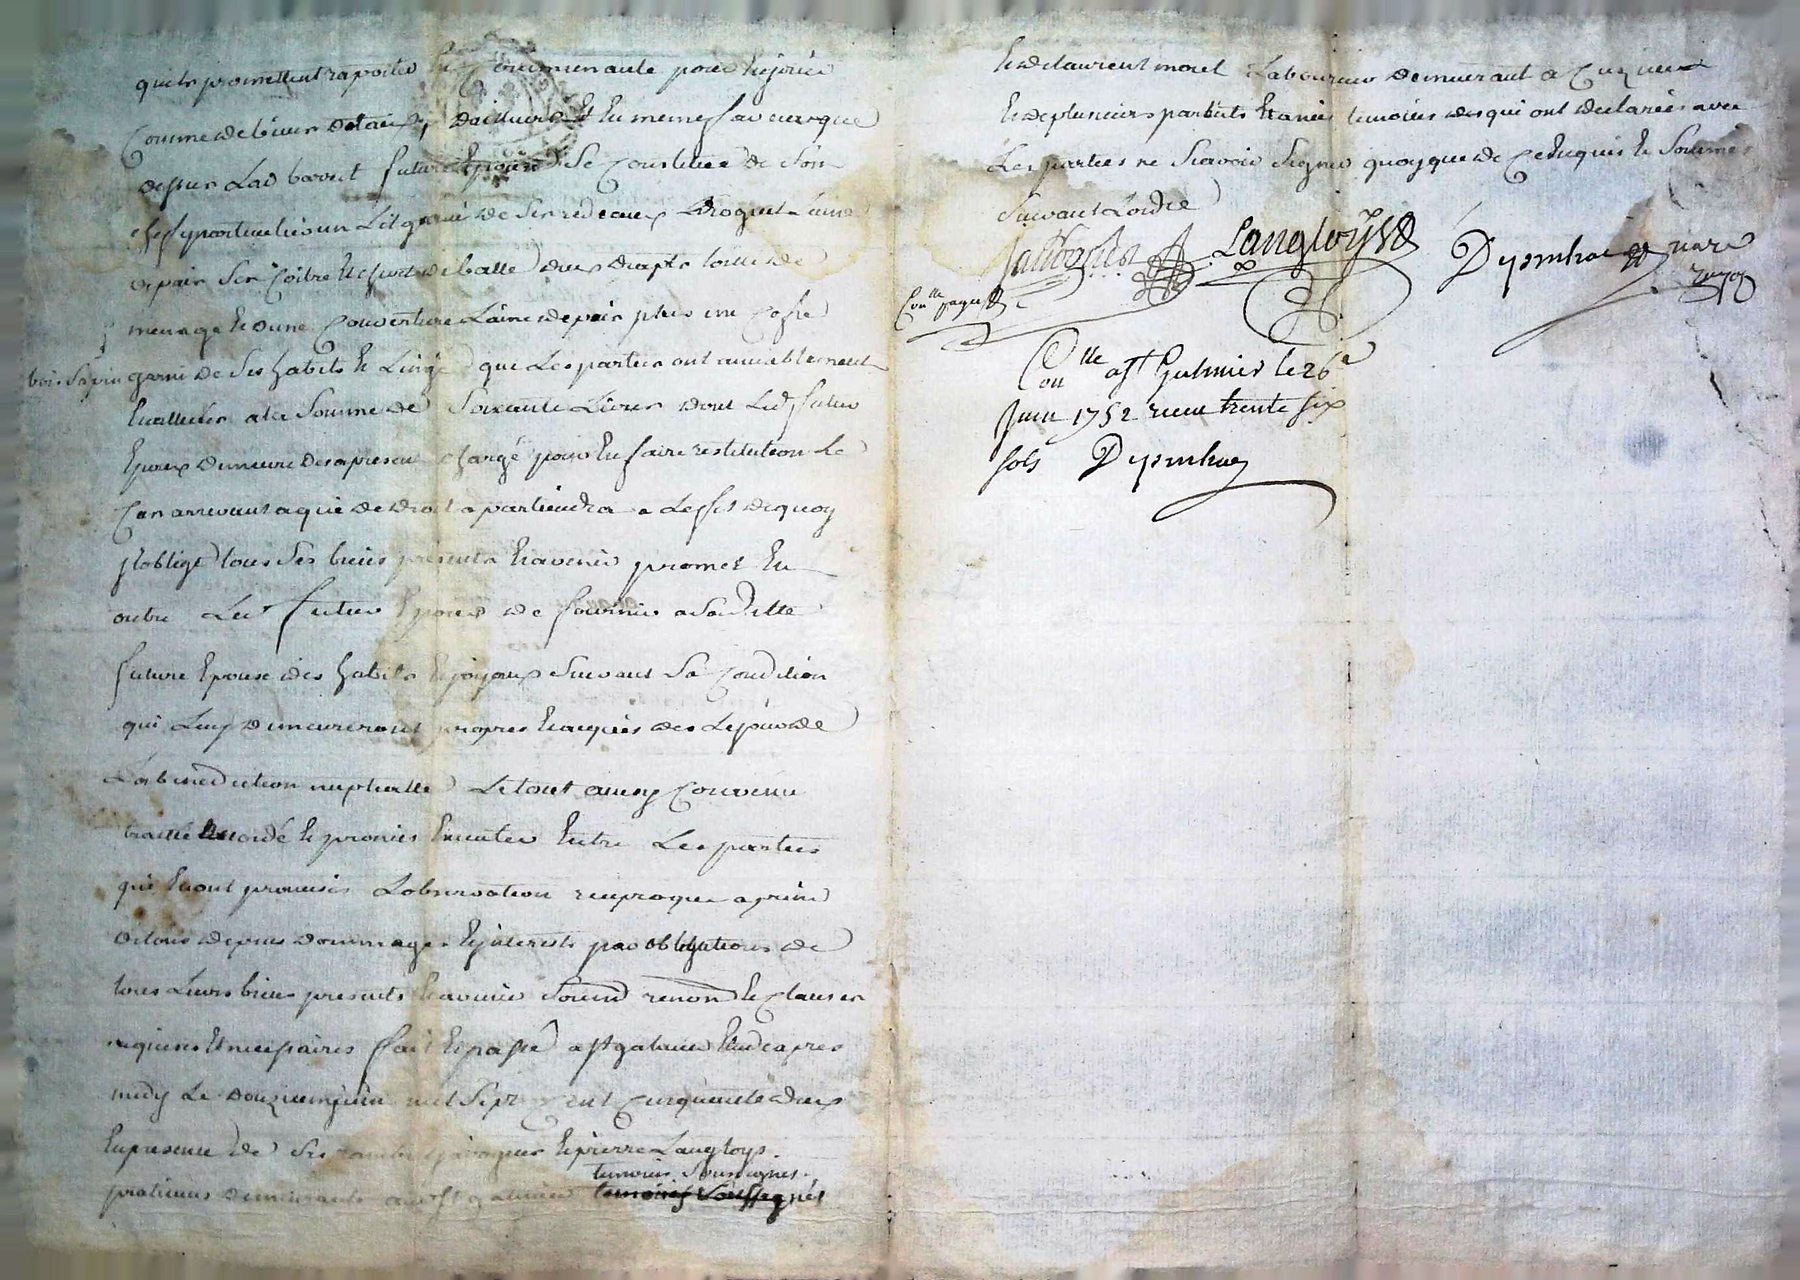 quils promettent raporter en Communauté pour En jouir
Comme de biens dotaux, d'ailleurs Et En meme faveur que
dessus Lad future Epouse Se Constitue de Son
chef particulier un Lit garni de Ses rideaux Droguet Laine
depair Son Coitre Et de balle deux draps toille de
menage Et dune Couverture Laine depair plus un Coffre
bois Sapin garni de Ses habits Et Linge que Les parties ont amiablement
Evalluées a la Somme de Soixante Livres dont Led futur
Epoux demeure des apresent chargé pour En faire restitution Le
Cas arrivant a qui de droit apartiendra a Leffet dequoy
Il oblige tous Ses biens presents Et avenir promet En
outre Led futur Epoux de fournir a Saditte
future Epouse des habits Et joyaux Suivant Sa Condition
qui Luy demeureront propres Et acquis des Le jour de
La benediction nuptialle Le tout ainsy Convenu
traitté accordé Et promis Executer Entre Les parties
qui En ont promis Lobservation reciproque a peine
de tous depens dommages Et interests par obligations de
tous Leurs biens presents Et avenir Soumd renond Et Clauses
requises Et necessaires fait Et passé a St galmier Etude apres
midy Le douzieme juin mil Sept Cent Cinquante deux
En presence de Et pierre Langloys
temoins Soussignes
praticiens demeurants aud St galmier temoins Soussignés
Et de laurent morel Laboureur demeurant a Cuzieu
Et de plusieurs parents Et amis temoins des qui ont declarés avec
Les parties ne Scavoir Signer quoyque de Ce Enquis Et Sommés
Suivant Lordre
Langloys
Conlle
Conlle a St Galmier le 26e
Juin 1752 receu trente six
sols